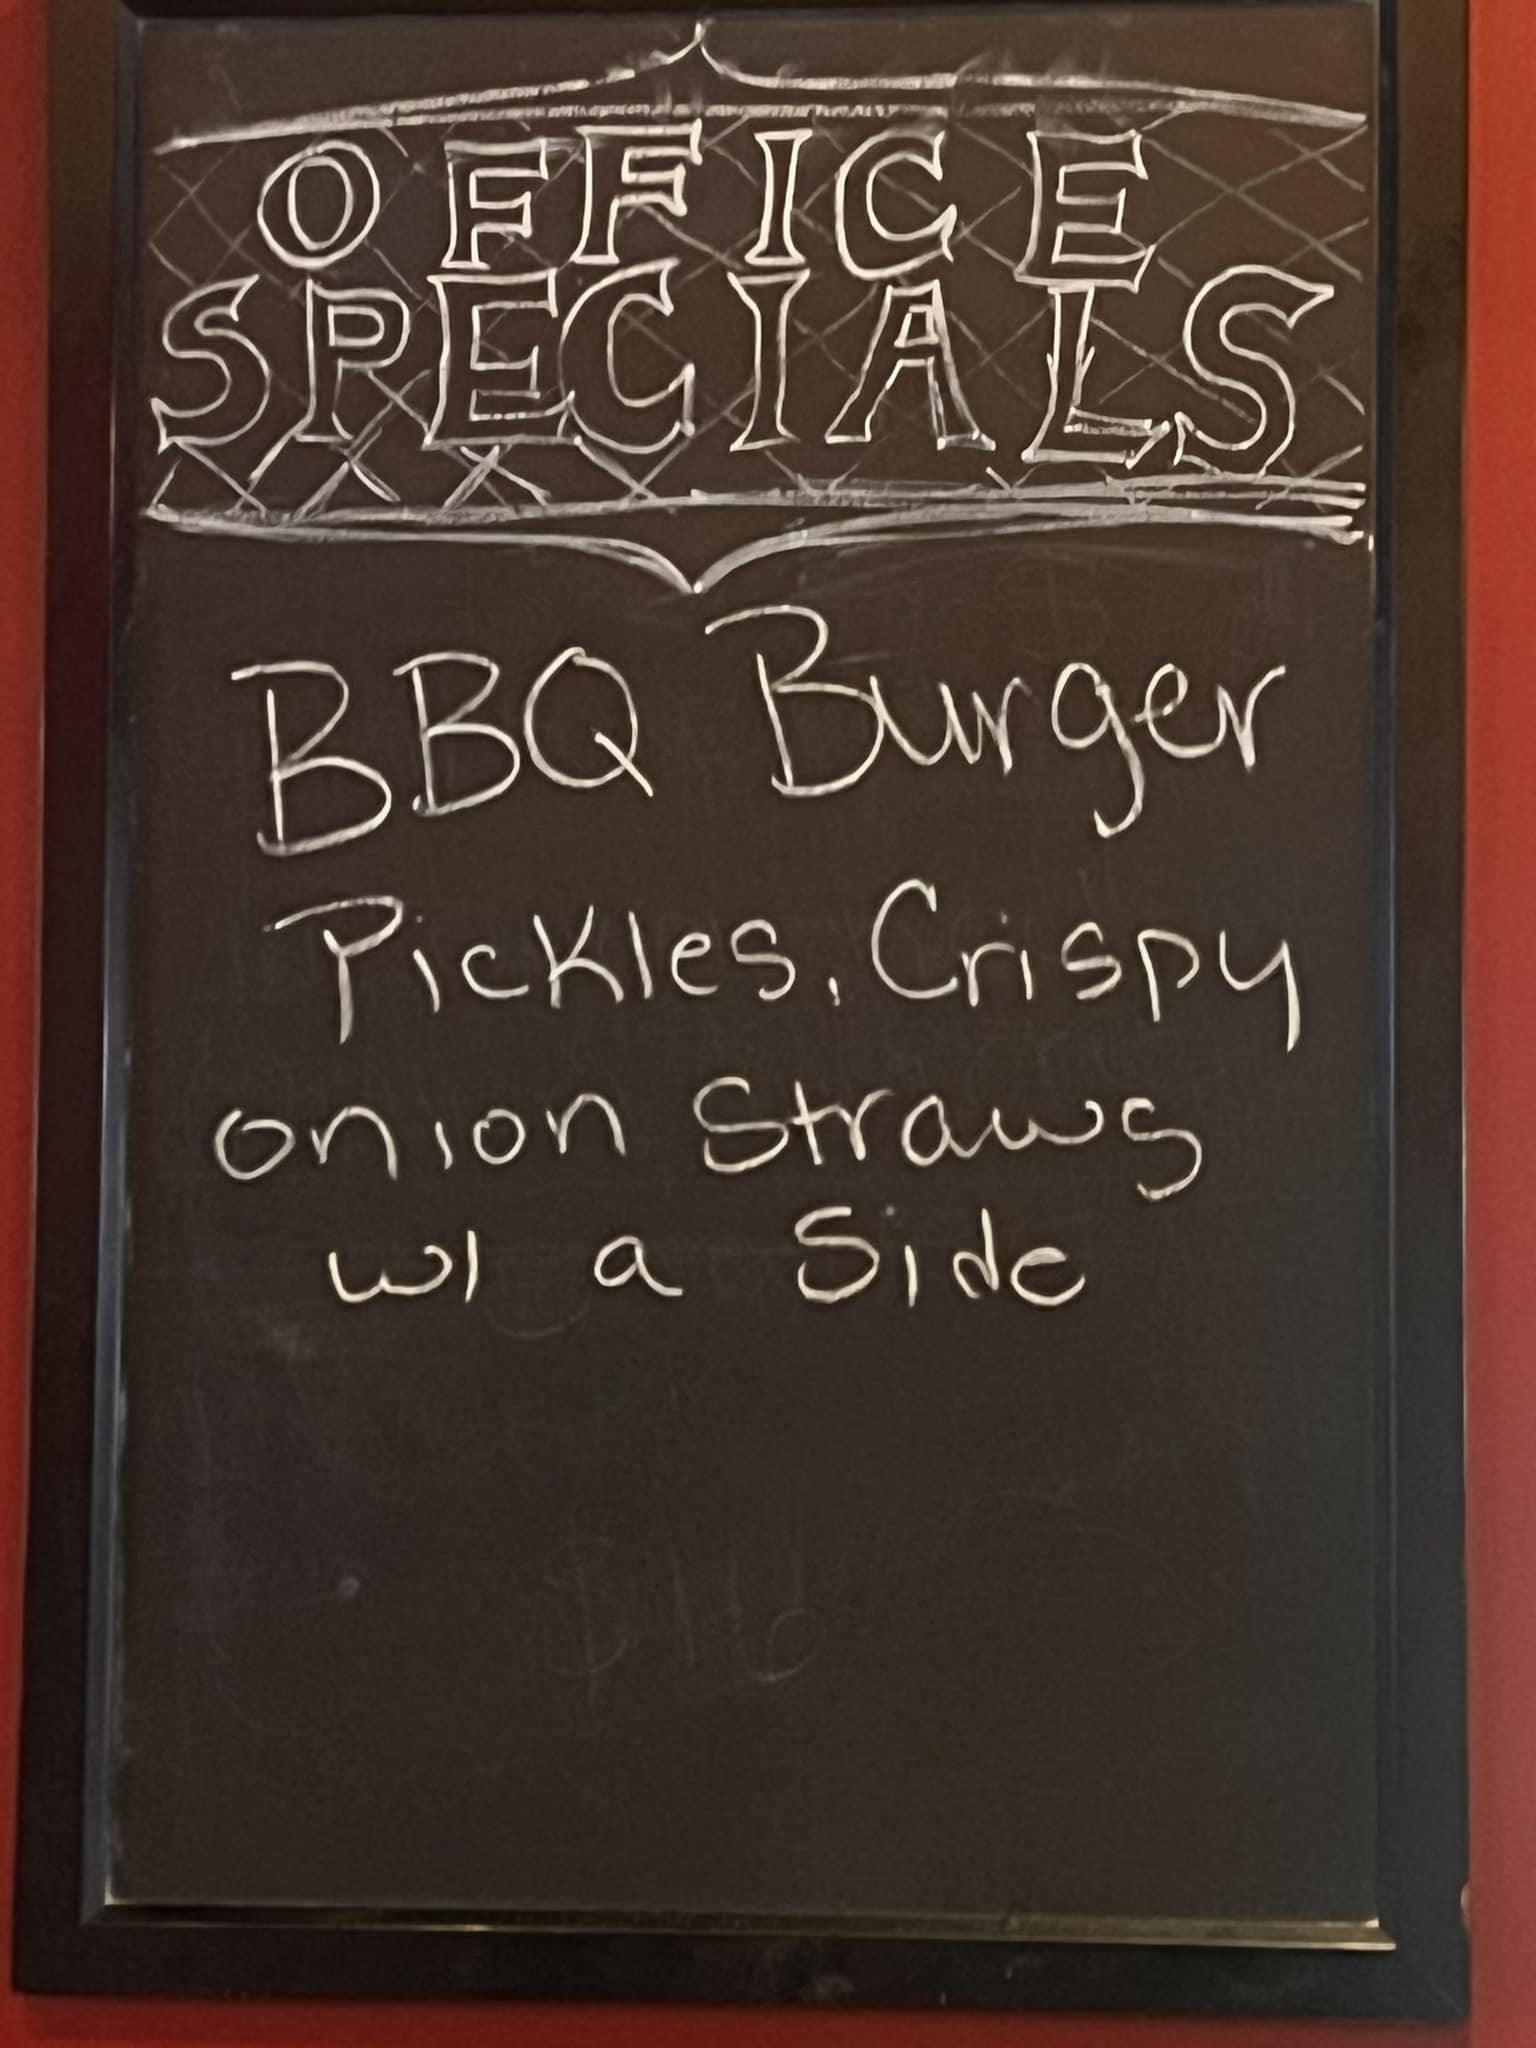 OFFICE
SPECIALS
BBQ Burger
Pickles, Crispy
onion Straws
w/ a Side